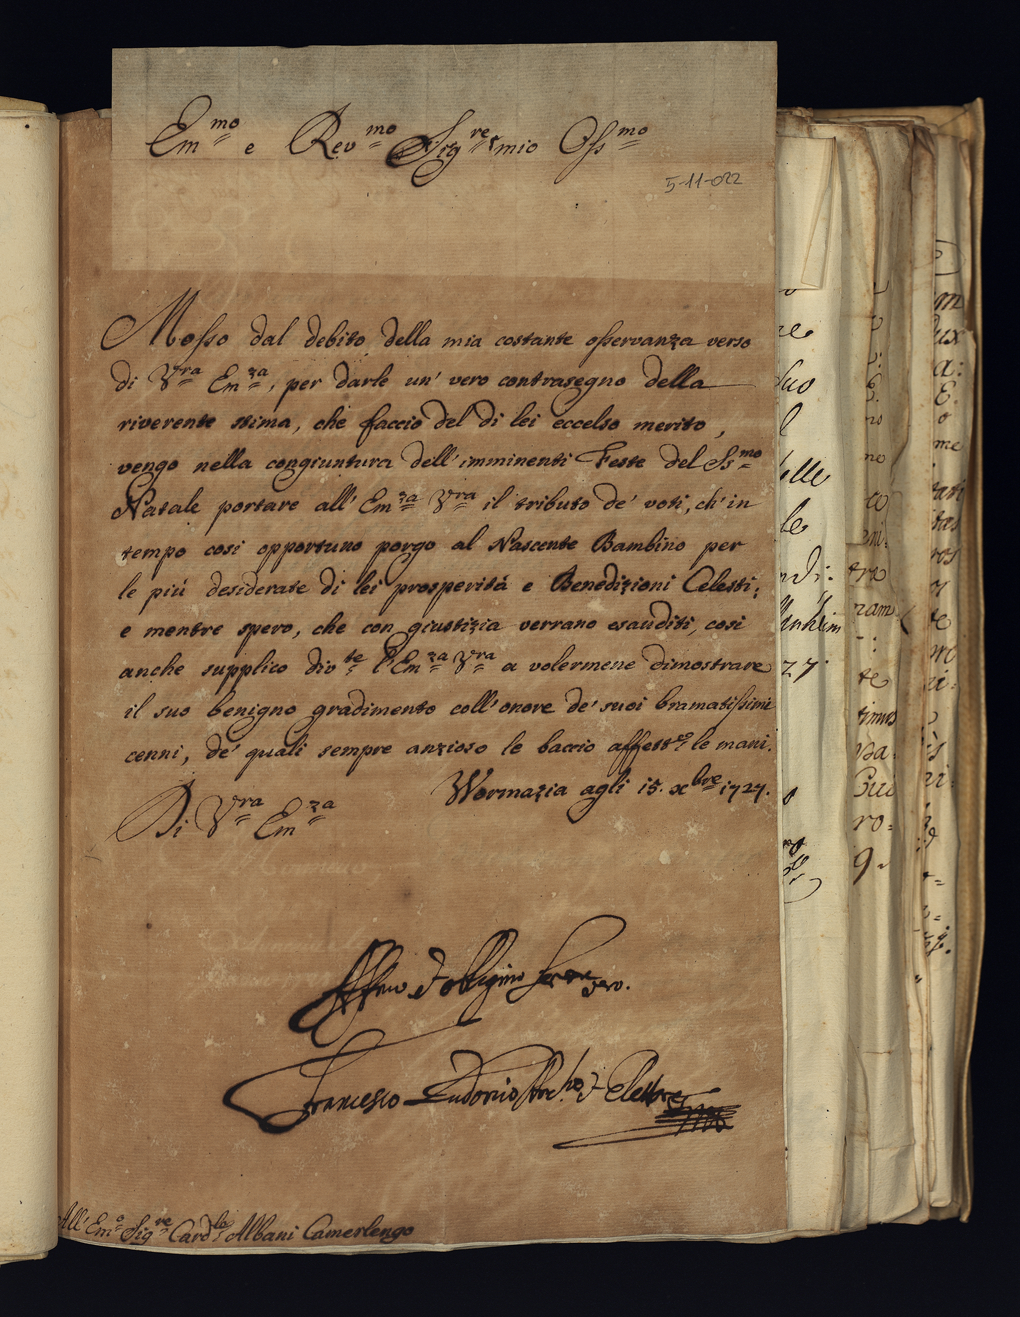 Em.mo e Rev.mo Sig.re mio Oss.mo
5-11-022
Mosso dal debito della mia costante osservanza verso
di V.ra Em.za, per darle un' vero contrasegno della
riverente stima, che faccio del di lei eccelso merito,
vengo nella congiuntura dell' imminenti Feste del SS.mo
Natale portare all' Em.za V.ra il tributo de' voti, ch' in
tempo cosi opportuno porgo al Nascente Bambino per
le più desiderate di lei prosperità e Benedizioni Celesti;
e mentre spero, che con giustizia verrano esauditi, cosi
anche supplico div.te l'Em.za V.ra a volermene dimostrare
il suo benigno gradimento coll' onore de' suoi bramatissimi
cenni, de' quali sempre anzioso le baccio affett.e le mani.
Wormazia agli 15. xbre 1727.
Di V.ra Em.za
Francesco Ludovico Elettore
All' Em.o Sig.re Card.le Albani Camerlengo